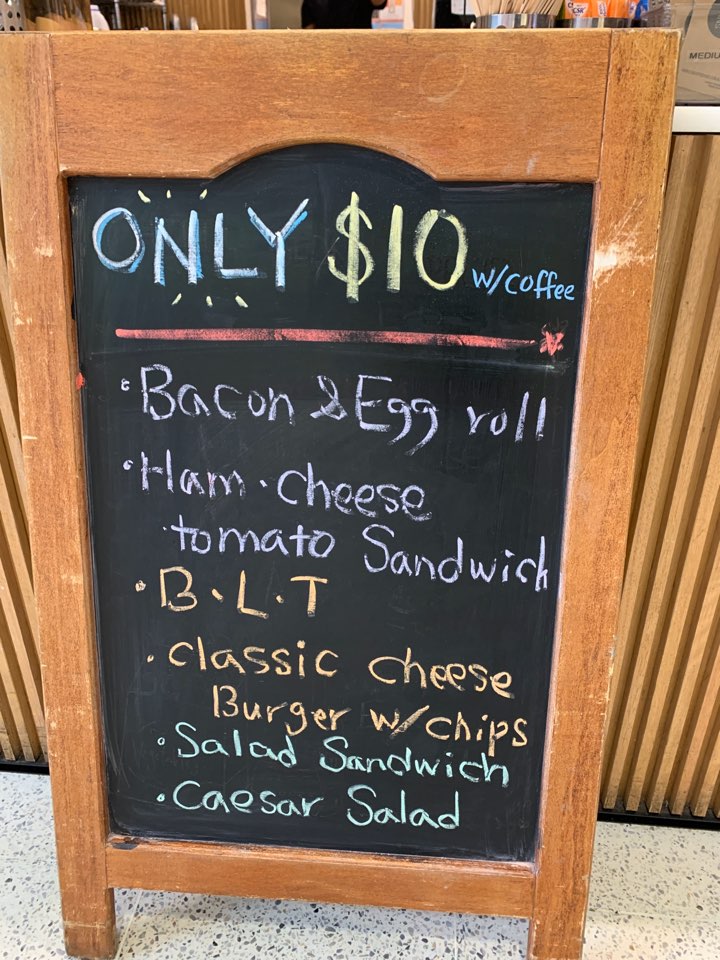 ONLY $10 w/coffee
• Bacon & Egg roll
• Ham · cheese
· tomato Sandwich
• B · L · T
• classic cheese
Burger w/chips
• Salad Sandwich
• Caesar Salad
MEDIU